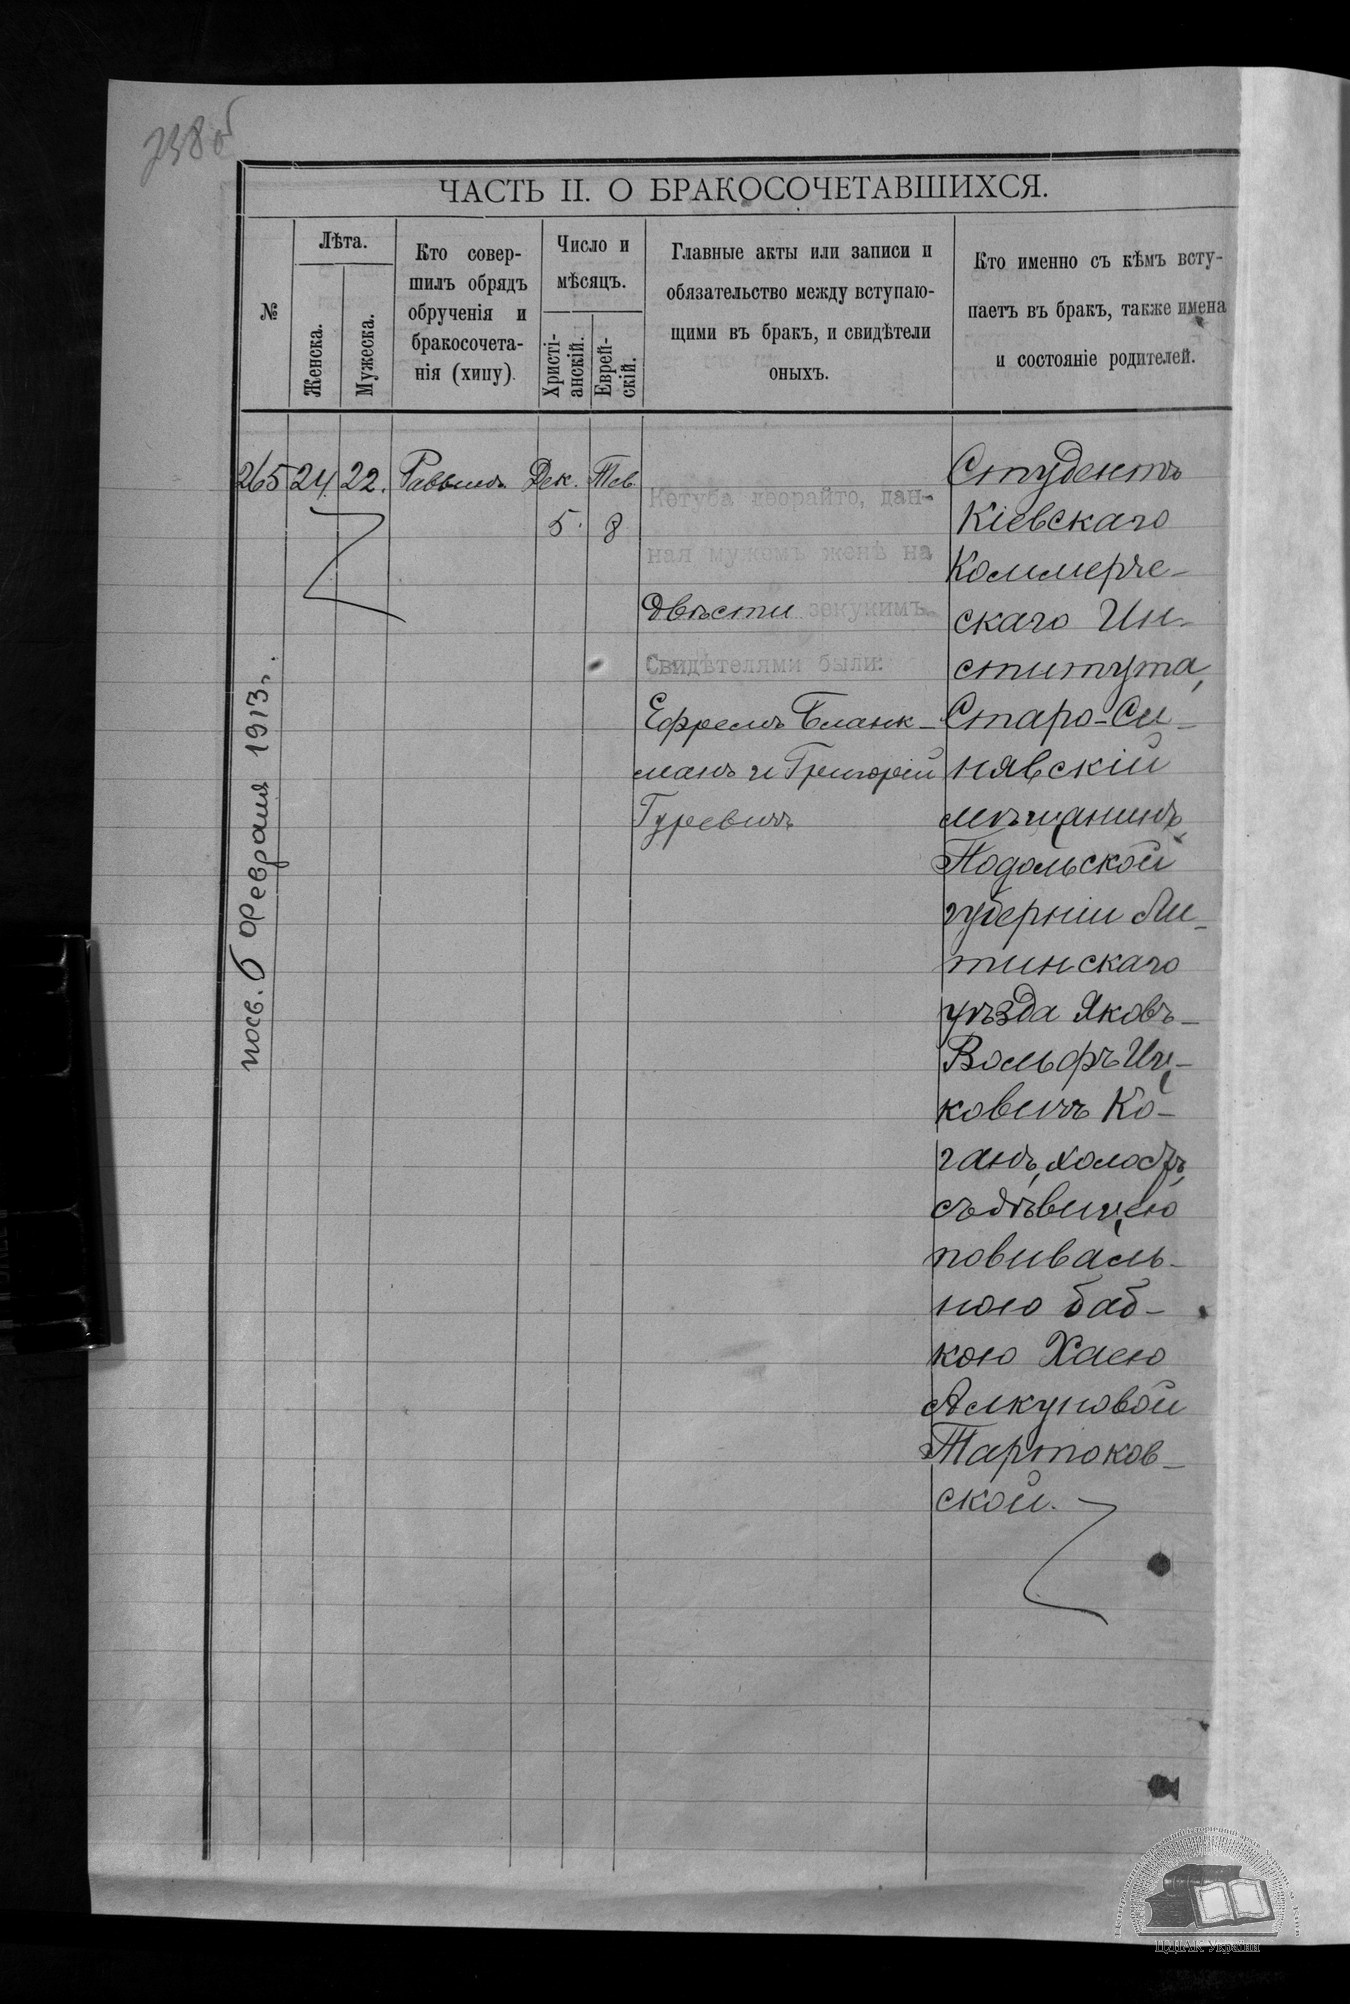 ЧАСТЬ II. О БРАКОСОЧЕТАВШИХСЯ.
№
Лѣта.
Женска.
Мужеска.
Кто совер-
шилъ обрядъ
обрученія и
бракосочета-
нія (хипу).
Число и
мѣсяцъ.
Христі-
анскій.
Еврей-
скій.
Главные акты или записи и
обязательство между вступаю-
щими въ бракъ, и свидѣтели
оныхъ.
Кто именно съ кѣмъ всту-
паетъ въ бракъ, также имена
и состояніе родителей.
265 24. 22. Раввинъ Дек. Тев.
5. 8
Кетуба деорайто, дан-
ная мужемъ женѣ на
двѣсти зекукимъ.
Свидѣтелями были:
Ефремъ Бланк-
манъ и Григорій
Гуревичъ
Студентъ
Кіевскаго
Коммерче-
скаго Ин-
ститута,
Старо-Си-
нявскій
мѣщанинъ
Подольской
губерніи Ли-
тинскаго
уѣзда Яковъ-
Вольфъ Иц-
ковичъ Ко-
ганъ, холостъ,
съ дѣвицею
повиваль-
ною баб-
кою Хаею
Алкуновой
Тартоков-
ской.
посв. 6 февраля 1913 г.
ЦДІАК України